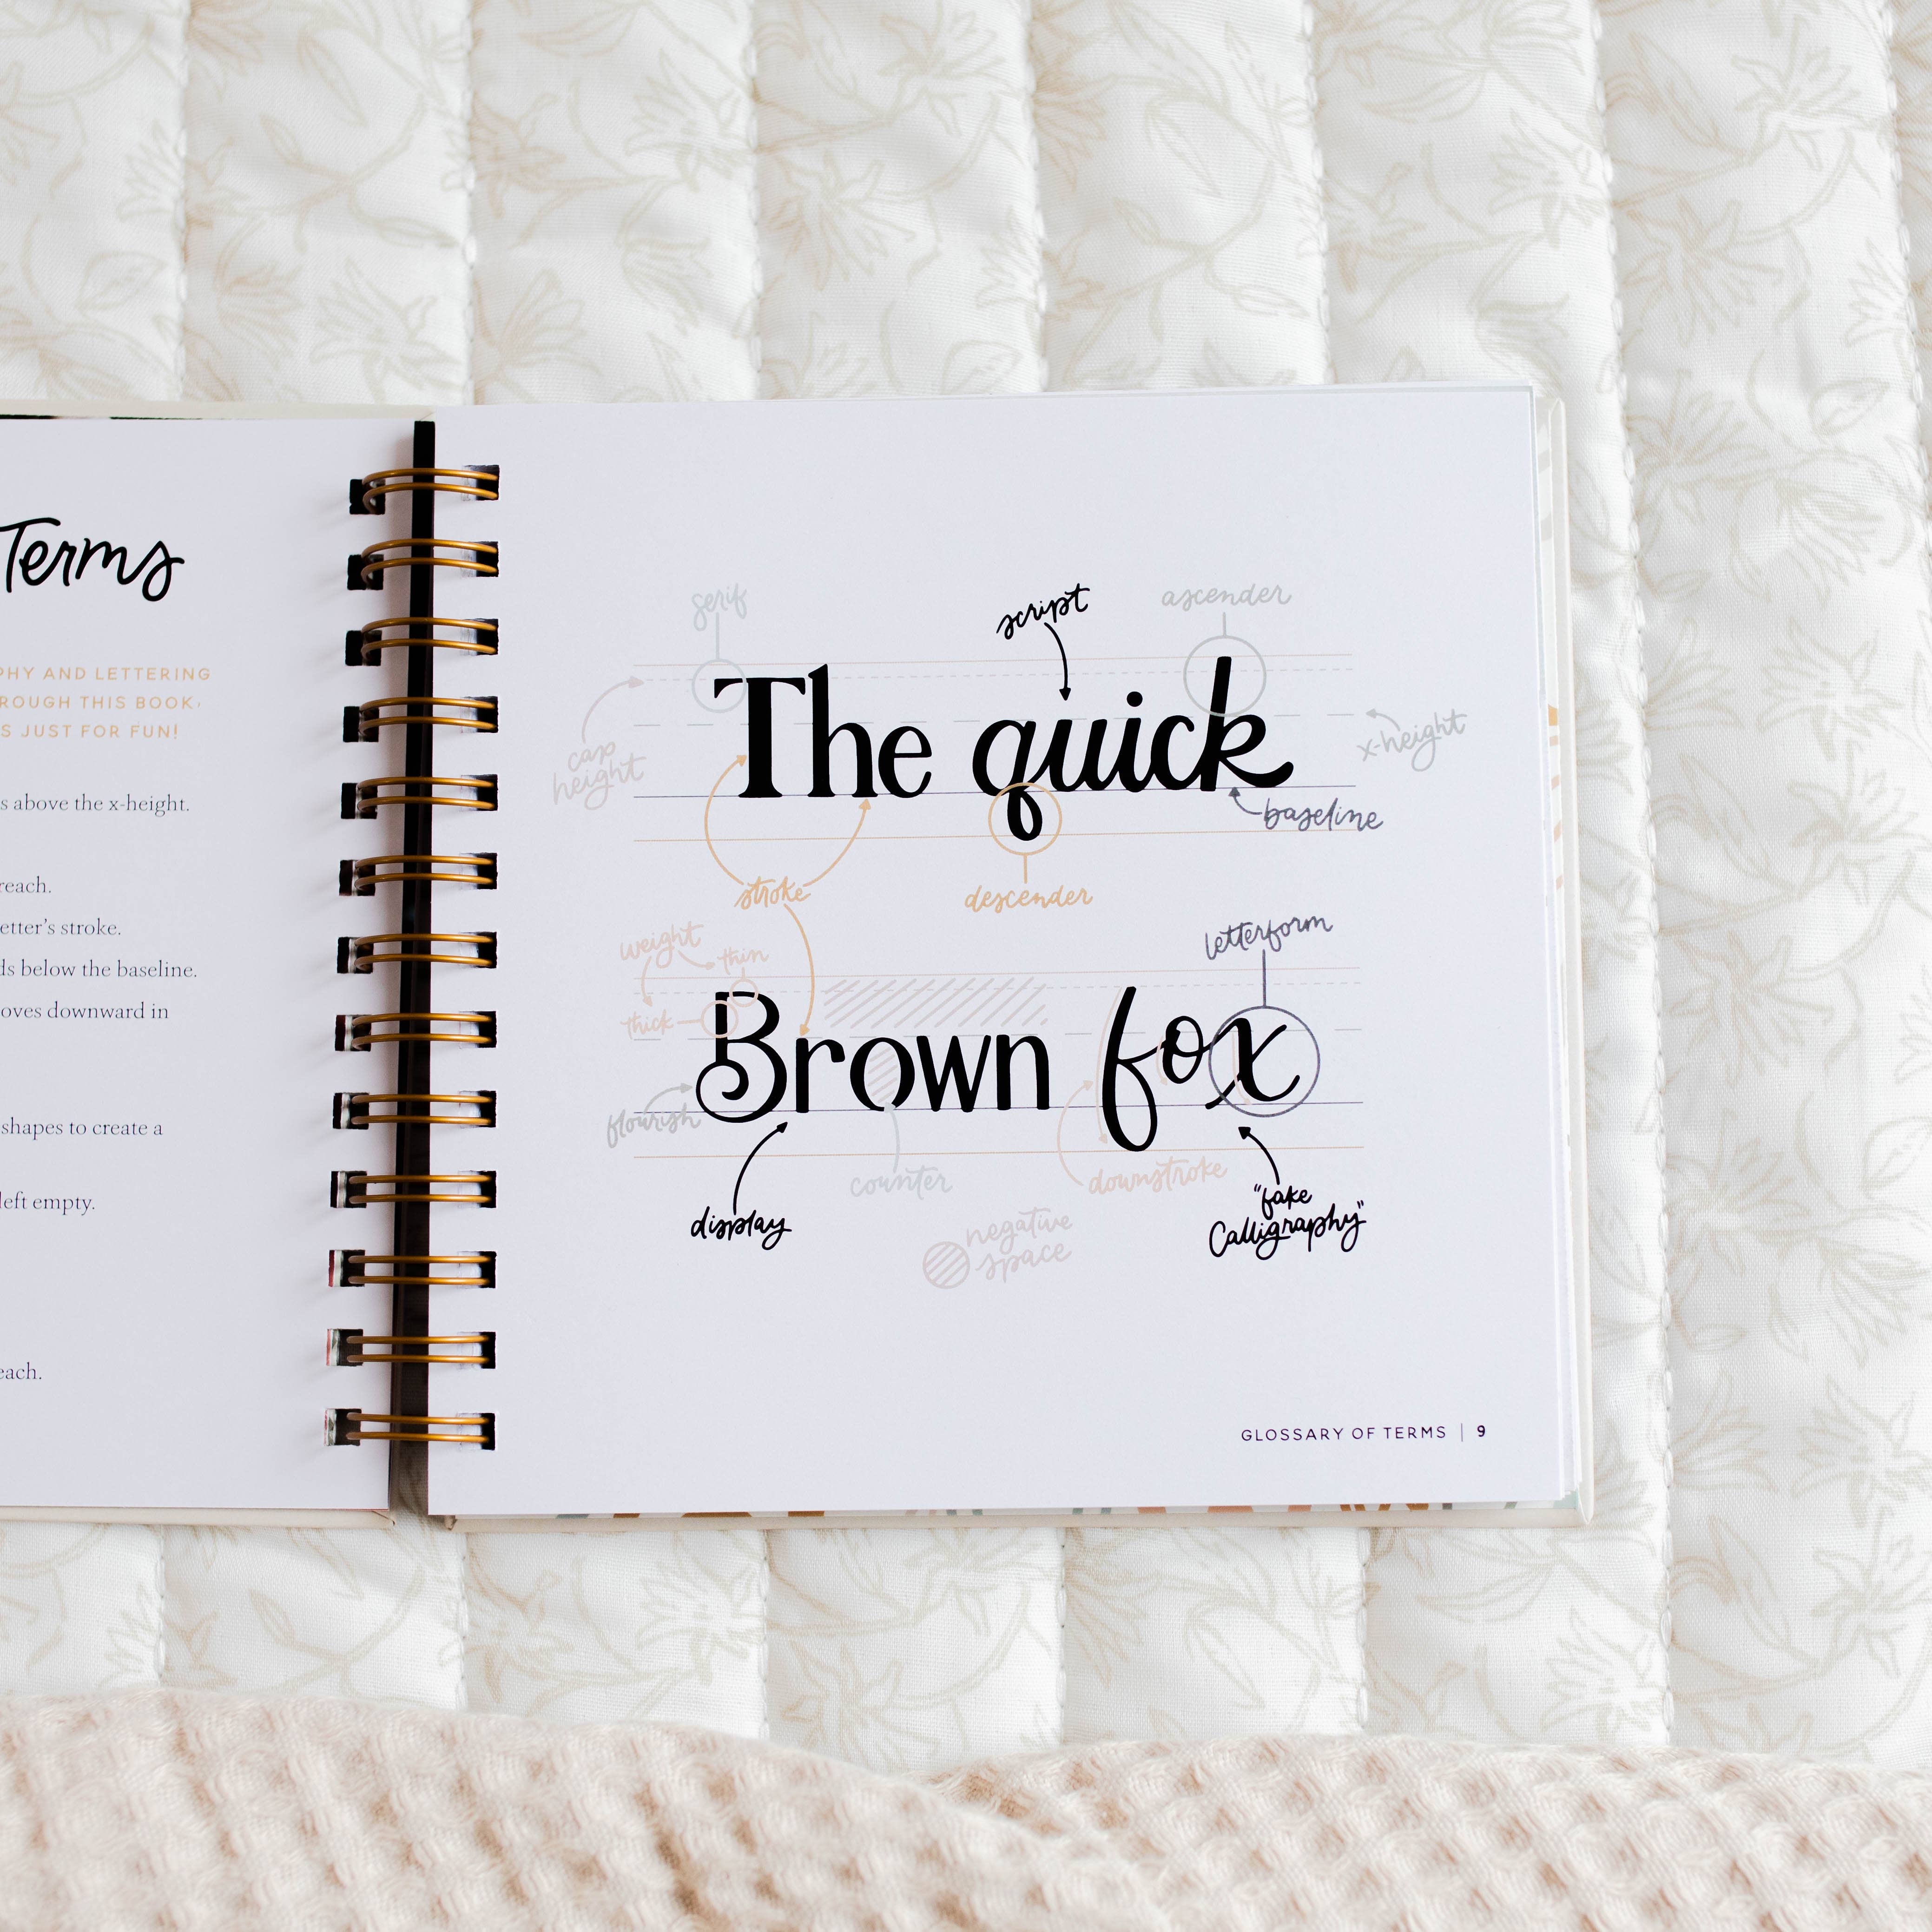 Terms
PHY AND LETTERING
ROUGH THIS BOOK,
S JUST FOR FUN!
s above the x-height.
reach.
etter's stroke.
ds below the baseline.
oves downward in
shapes to create a
left empty.
each.
serif
script
ascender
cap
height
The quick
x-height
baseline
stroke
descender
weight
thin
thick
letterform
Brown fox
flourish
display
counter
downstroke
negative
space
"fake
Calligraphy"
GLOSSARY OF TERMS | 9